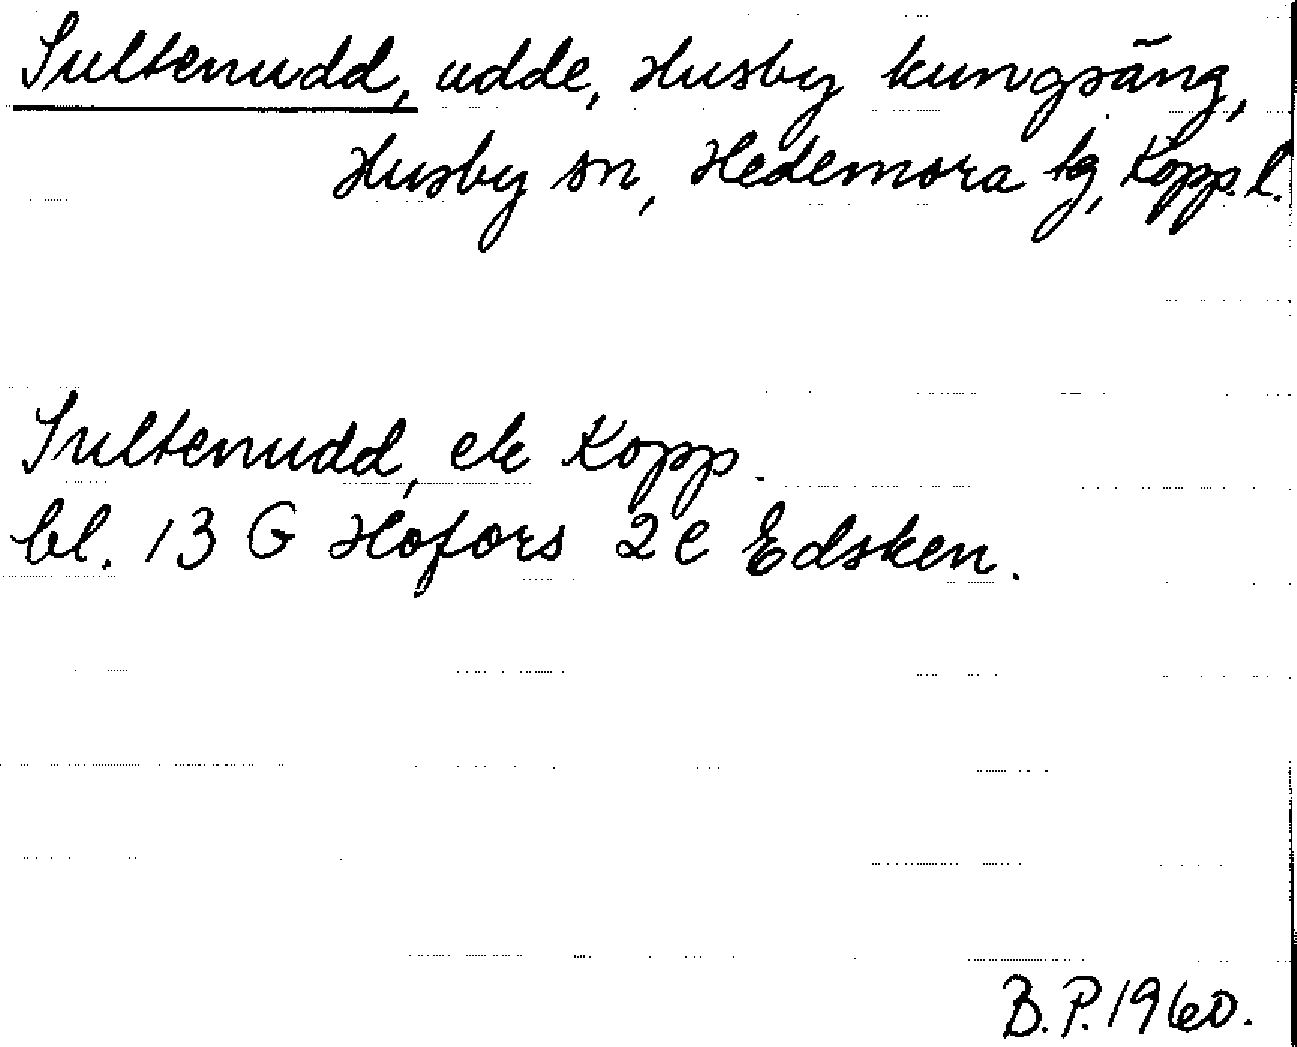 Sultenudd, udde, Husby kungsäng,
Husby sn, Hedemora tg, Kopp. l.
Sultenudd, ek Kopp.
bl. 13 G Hofors 2 e Edsken.
B.P. 1960.